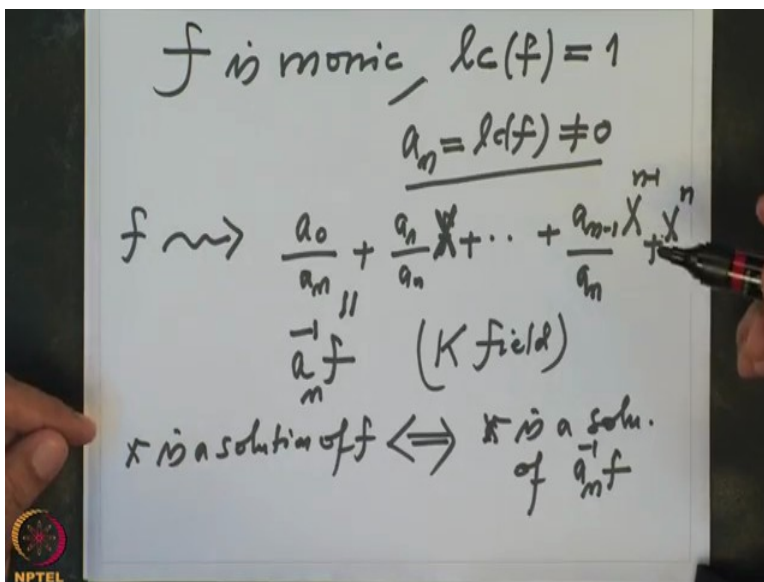 f is monic, lc(f) = 1
a_n = lc(f) ≠ 0
f ⇝ a_0/a_n + a_n/a_n X + ·· + a_{n-1}/a_n X^{n-1} + X^n
||
a_n^{-1} f (K field)
x is a solution of f ⟺ x is a soln.
of a_n^{-1} f
NPTEL